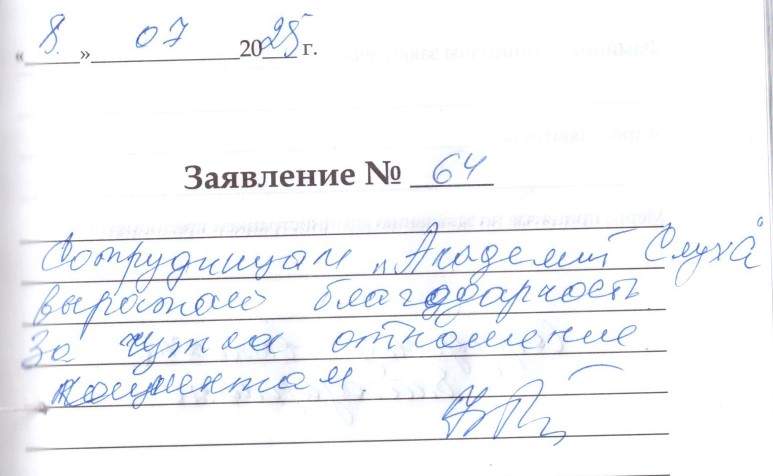 «8.» 07 2025 г.
Заявление № 64
Сотрудницам „Академии Слуха"
выражаю благодарность
За чуткое отношение
пациентам.